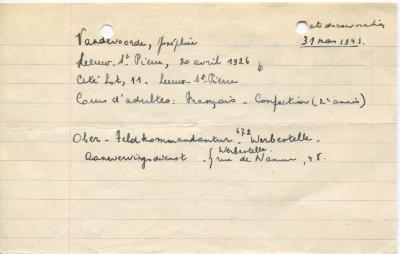 Date de convocation
Vandevoorde, Joséphine
31 mars 1943.
Leeuw-St-Pierre, 20 avril 1926
Cité Lot, 11 - Leeuw-St-Pierre
Cours d'adultes: Français - Confection (2e année)
Ober-Feldkommandantur 672 Werbestelle.
Aanwervingsdienst - Werbestelle.
rue de Namur, 48.